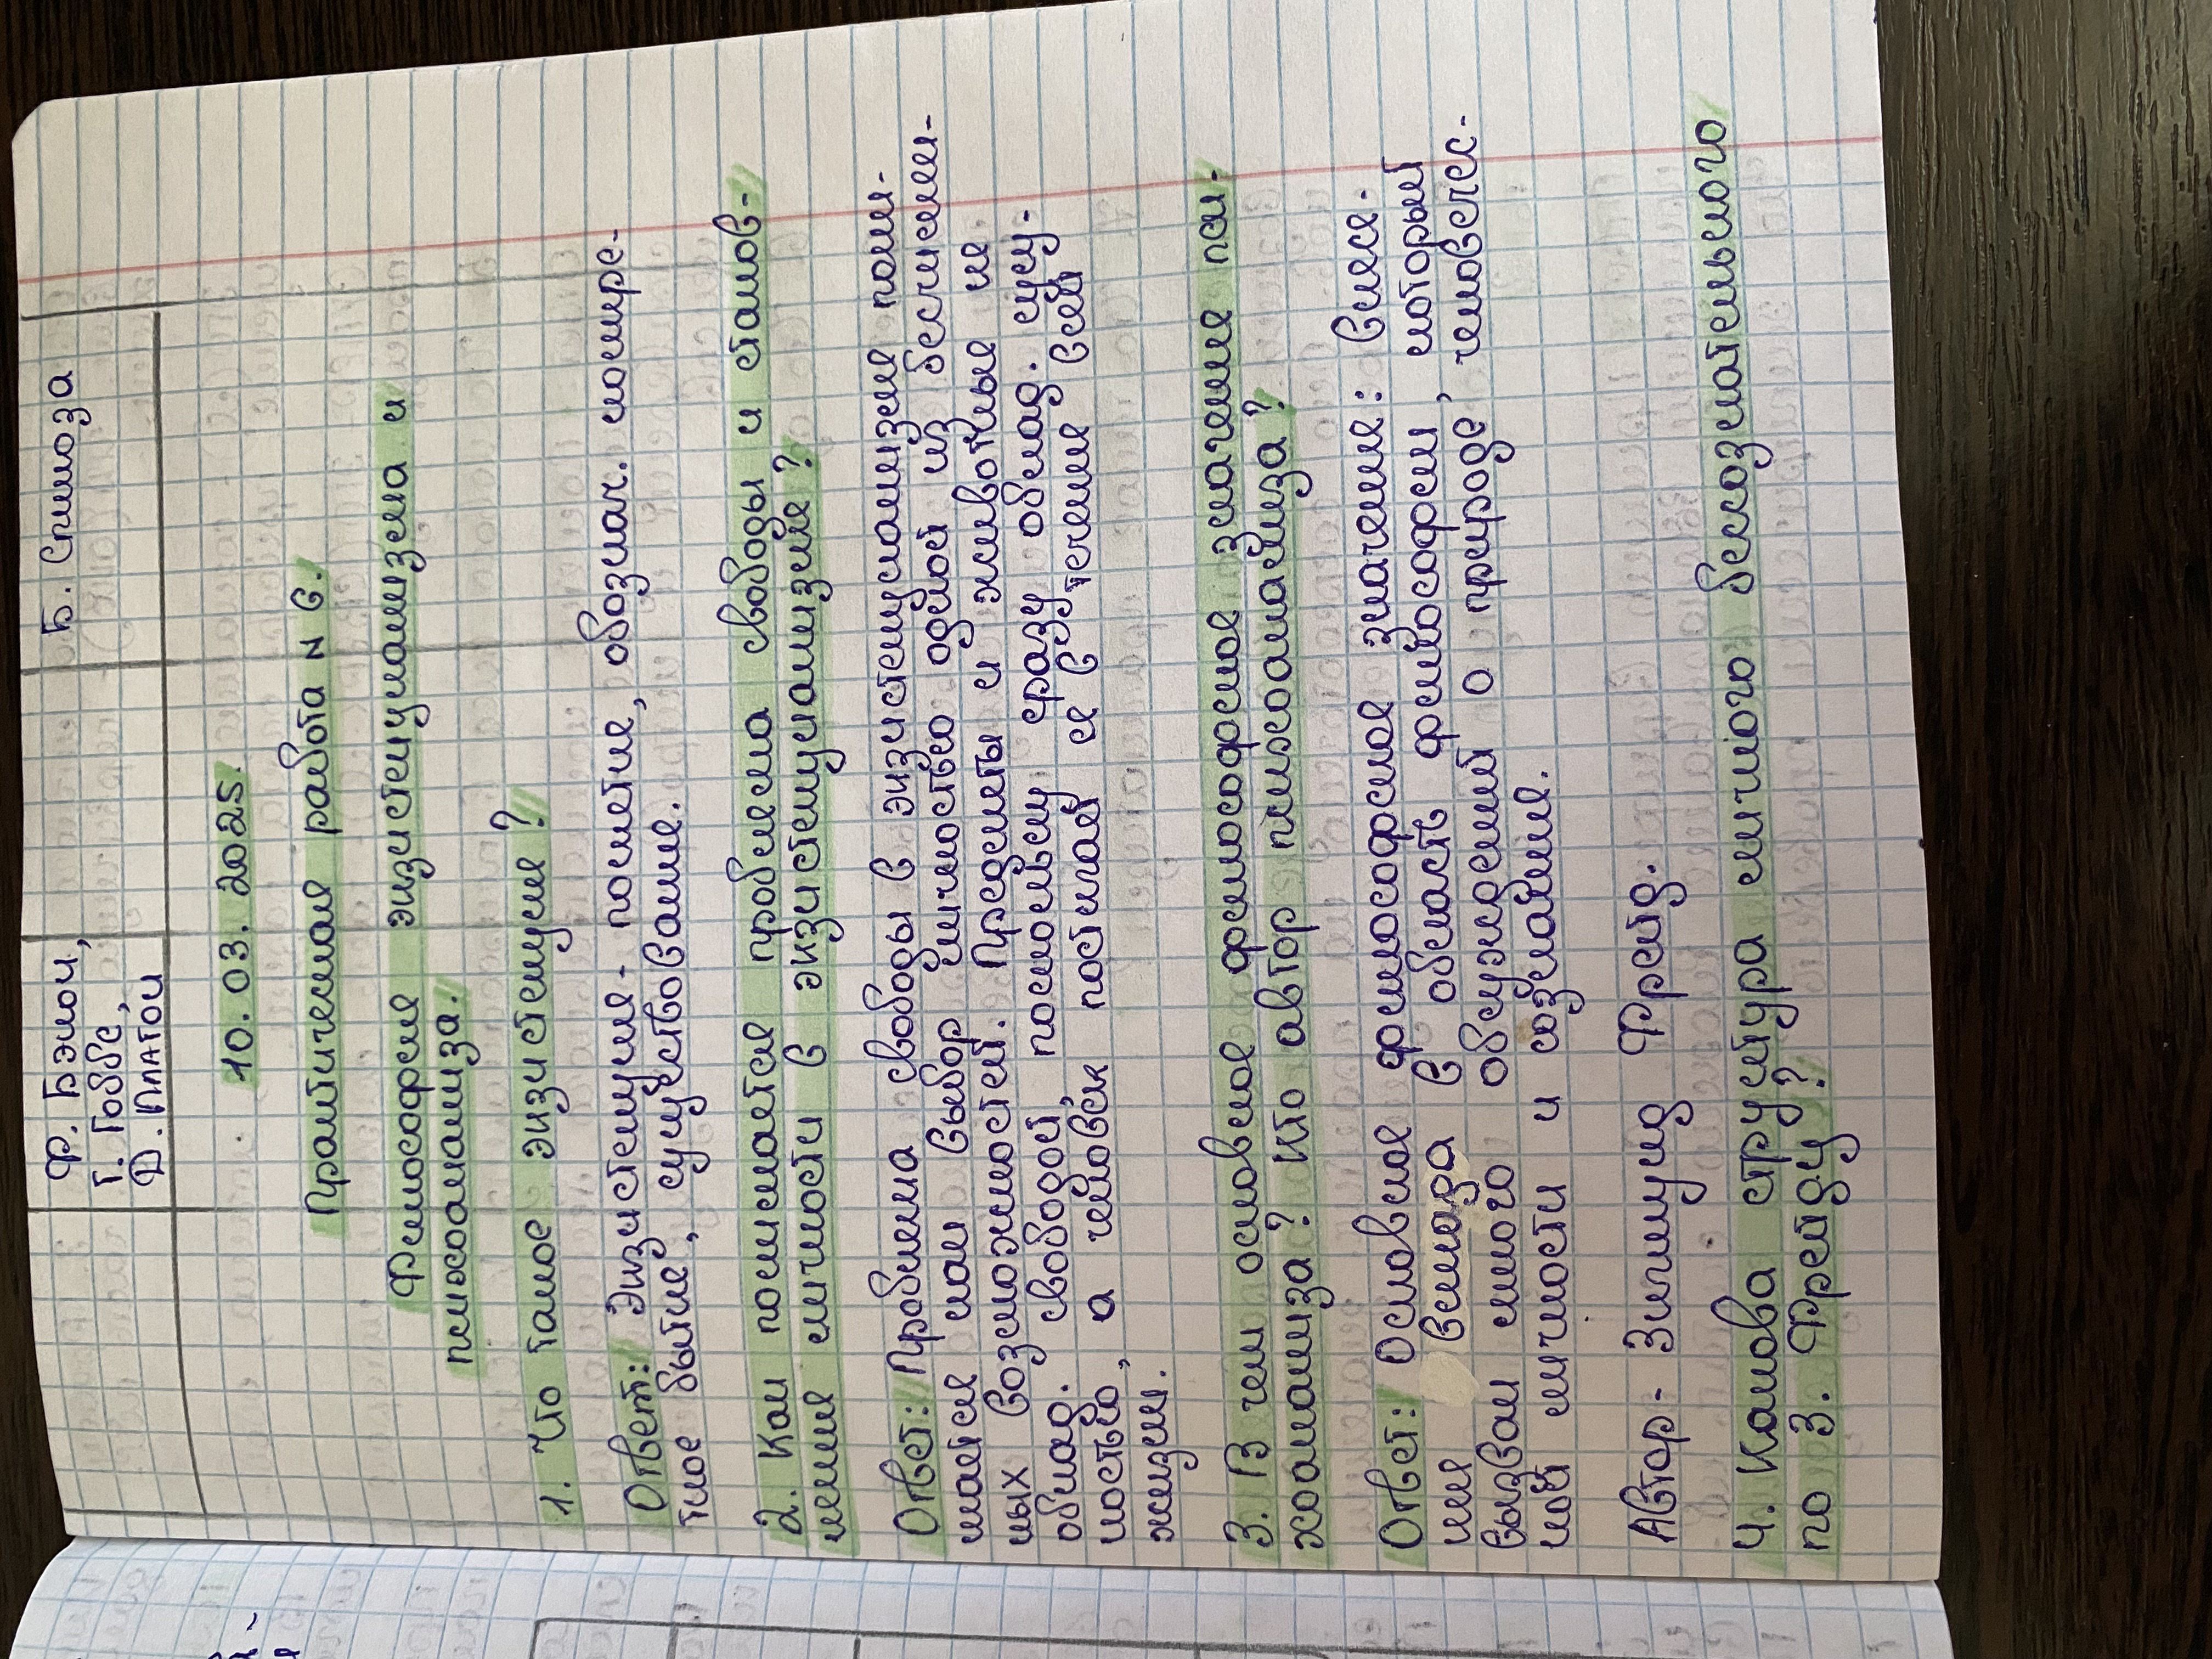 Ф. Бэкон,
Г. Гоббс,
Д. Платон
Б. Спиноза
10. 03. 2025.
Практическая работа N 6.
Философия экзистенциализма и
психоанализа.
1. Что такое экзистенция?
Ответ: Экзистенция - понятие, обознач. конкре-
тное бытие, существование.
2. Как понимается проблема свободы и станов-
ления личности в экзистенциализме?
Ответ: Проблема свободы в экзистенциализме пони-
мается как выбор личностью одной из бесчислен-
ных возможностей. Предметы и животные не
облад. свободой, поскольку сразу облад. сущ-
ностью, а человек постигает её в течение всей
жизни.
3. В чем основное философское значение пси-
хоанализа? Кто автор психоанализа?
Ответ: Основное философское значение: внесе-
ние вклада в область философии, который
вызвал много обсуждений о природе человечес-
кой личности и сознание.
Автор - Зигмунд Фрейд.
4. Какова структура личного бессознательного
по З. Фрейду?